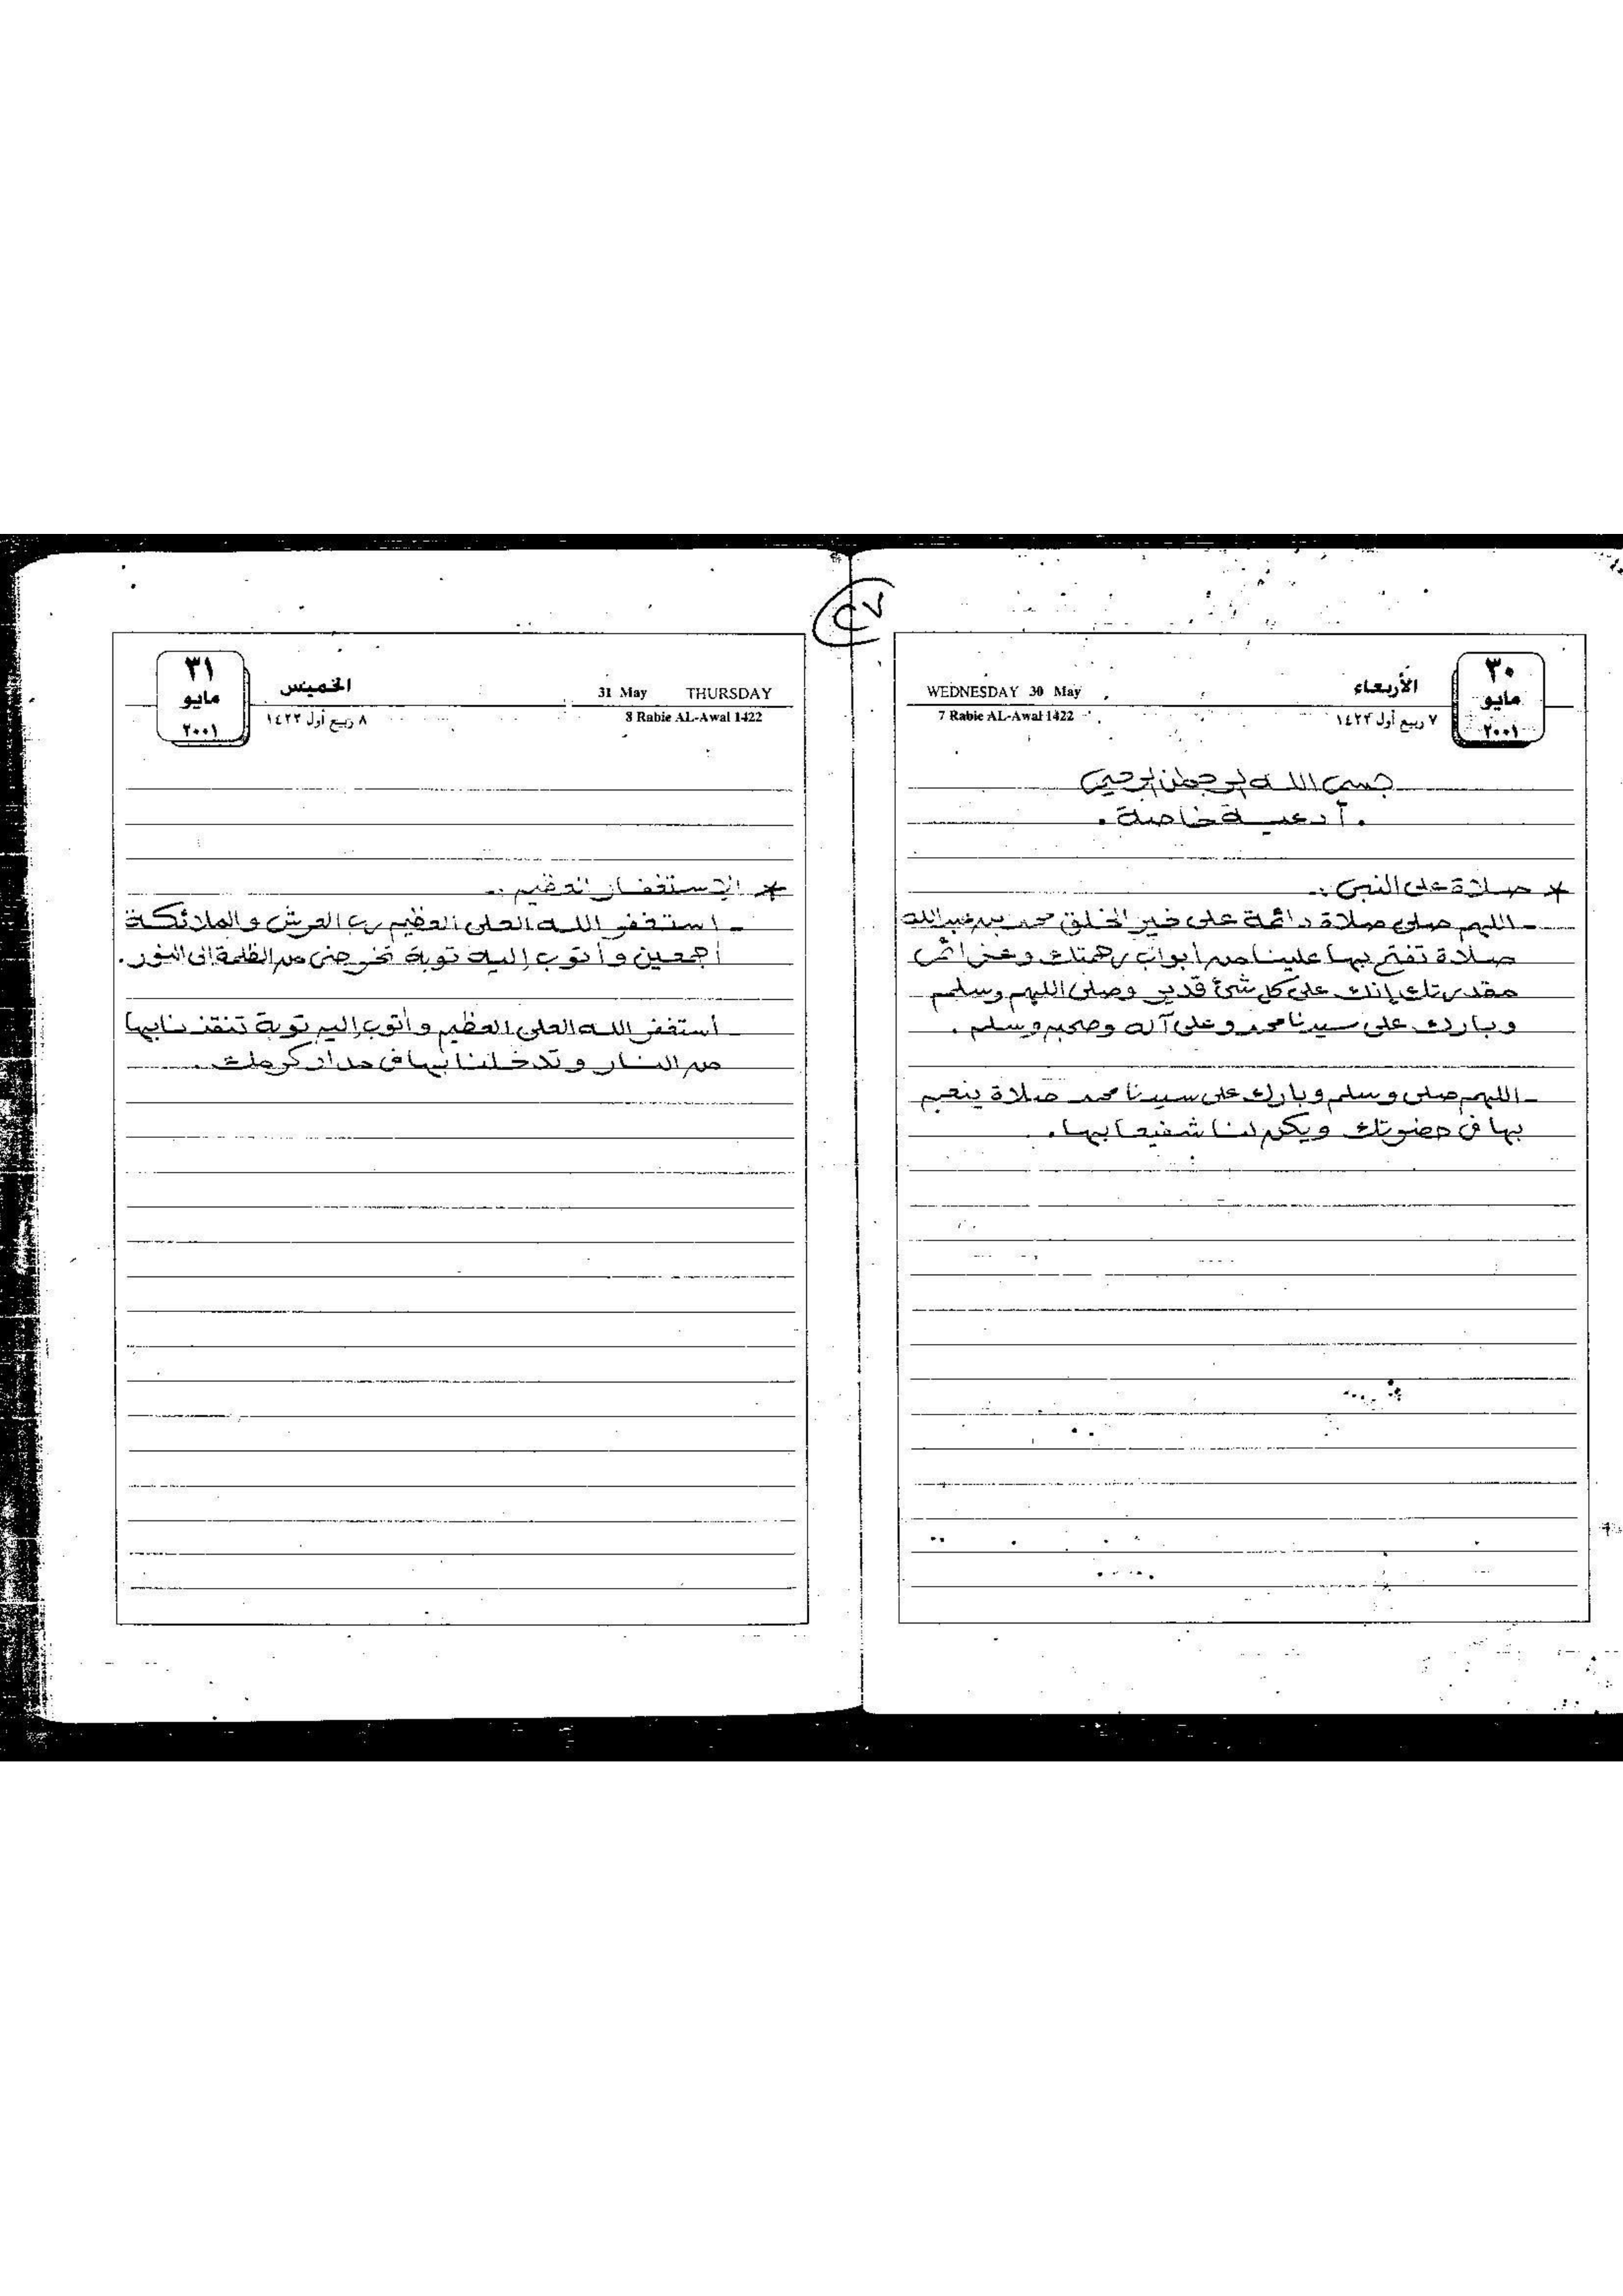 ٢٧
٣٠
مايو
٢٠٠١
الأربعاء
WEDNESDAY 30 May
٧ ربيع أول ١٤٢٢
7 Rabie AL-Awal 1422
بسم الله الرحمن الرحيم
. أدعية خاصة .
* صلاة على النبى :-
- اللهم صلى صلاة دائمة على خير الخلق محمد بن عبد الله
صلاة تفتح بها علينا من أبواب رحمتك وعزائم
مقدرتك إنك على كل شئ قدير وصلى اللهم وسلم
وبارك على سيدنا محمد وعلى آله وصحبه وسلم .
- اللهم صلى وسلم وبارك على سيدنا محمد صلاة ينعم
بها فى حضرتك ويكن لنا شفيعا بها .
٣١
مايو
٢٠٠١
الخميس
31 May THURSDAY
٨ ربيع أول ١٤٢٢
8 Rabie AL-Awal 1422
* الإستغفار العظيم :-
- استغفر الله العلى العظيم رب العرش والملائكة
أجمعين وأتوب إليه توبة تخرجنى من الظلمة إلى النور .
- أستغفر الله العلى العظيم وأتوب إليه توبة تنقذنا بها
من النار وتدخلنا بها فى كرمك .